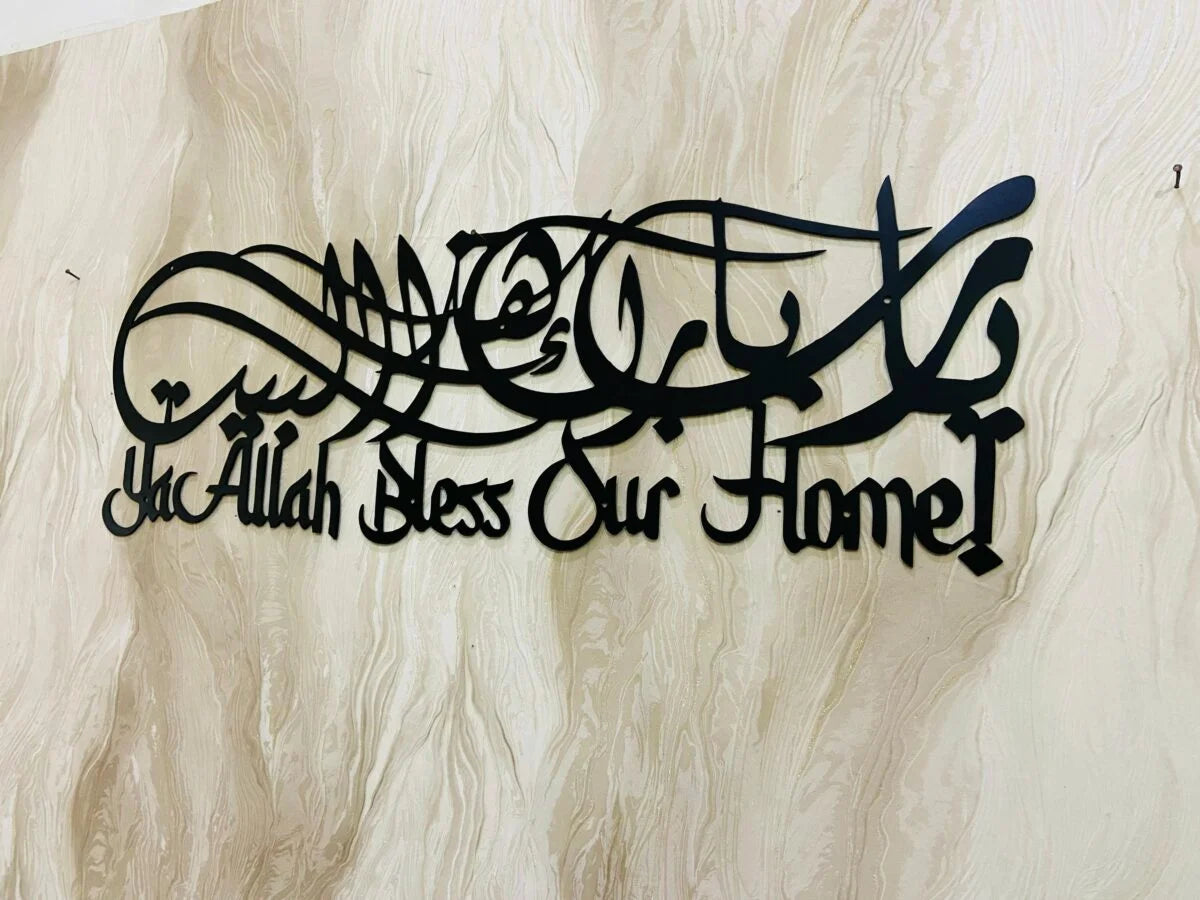 يا رب بارك هذا البيت
Ya Allah Bless Our Home!